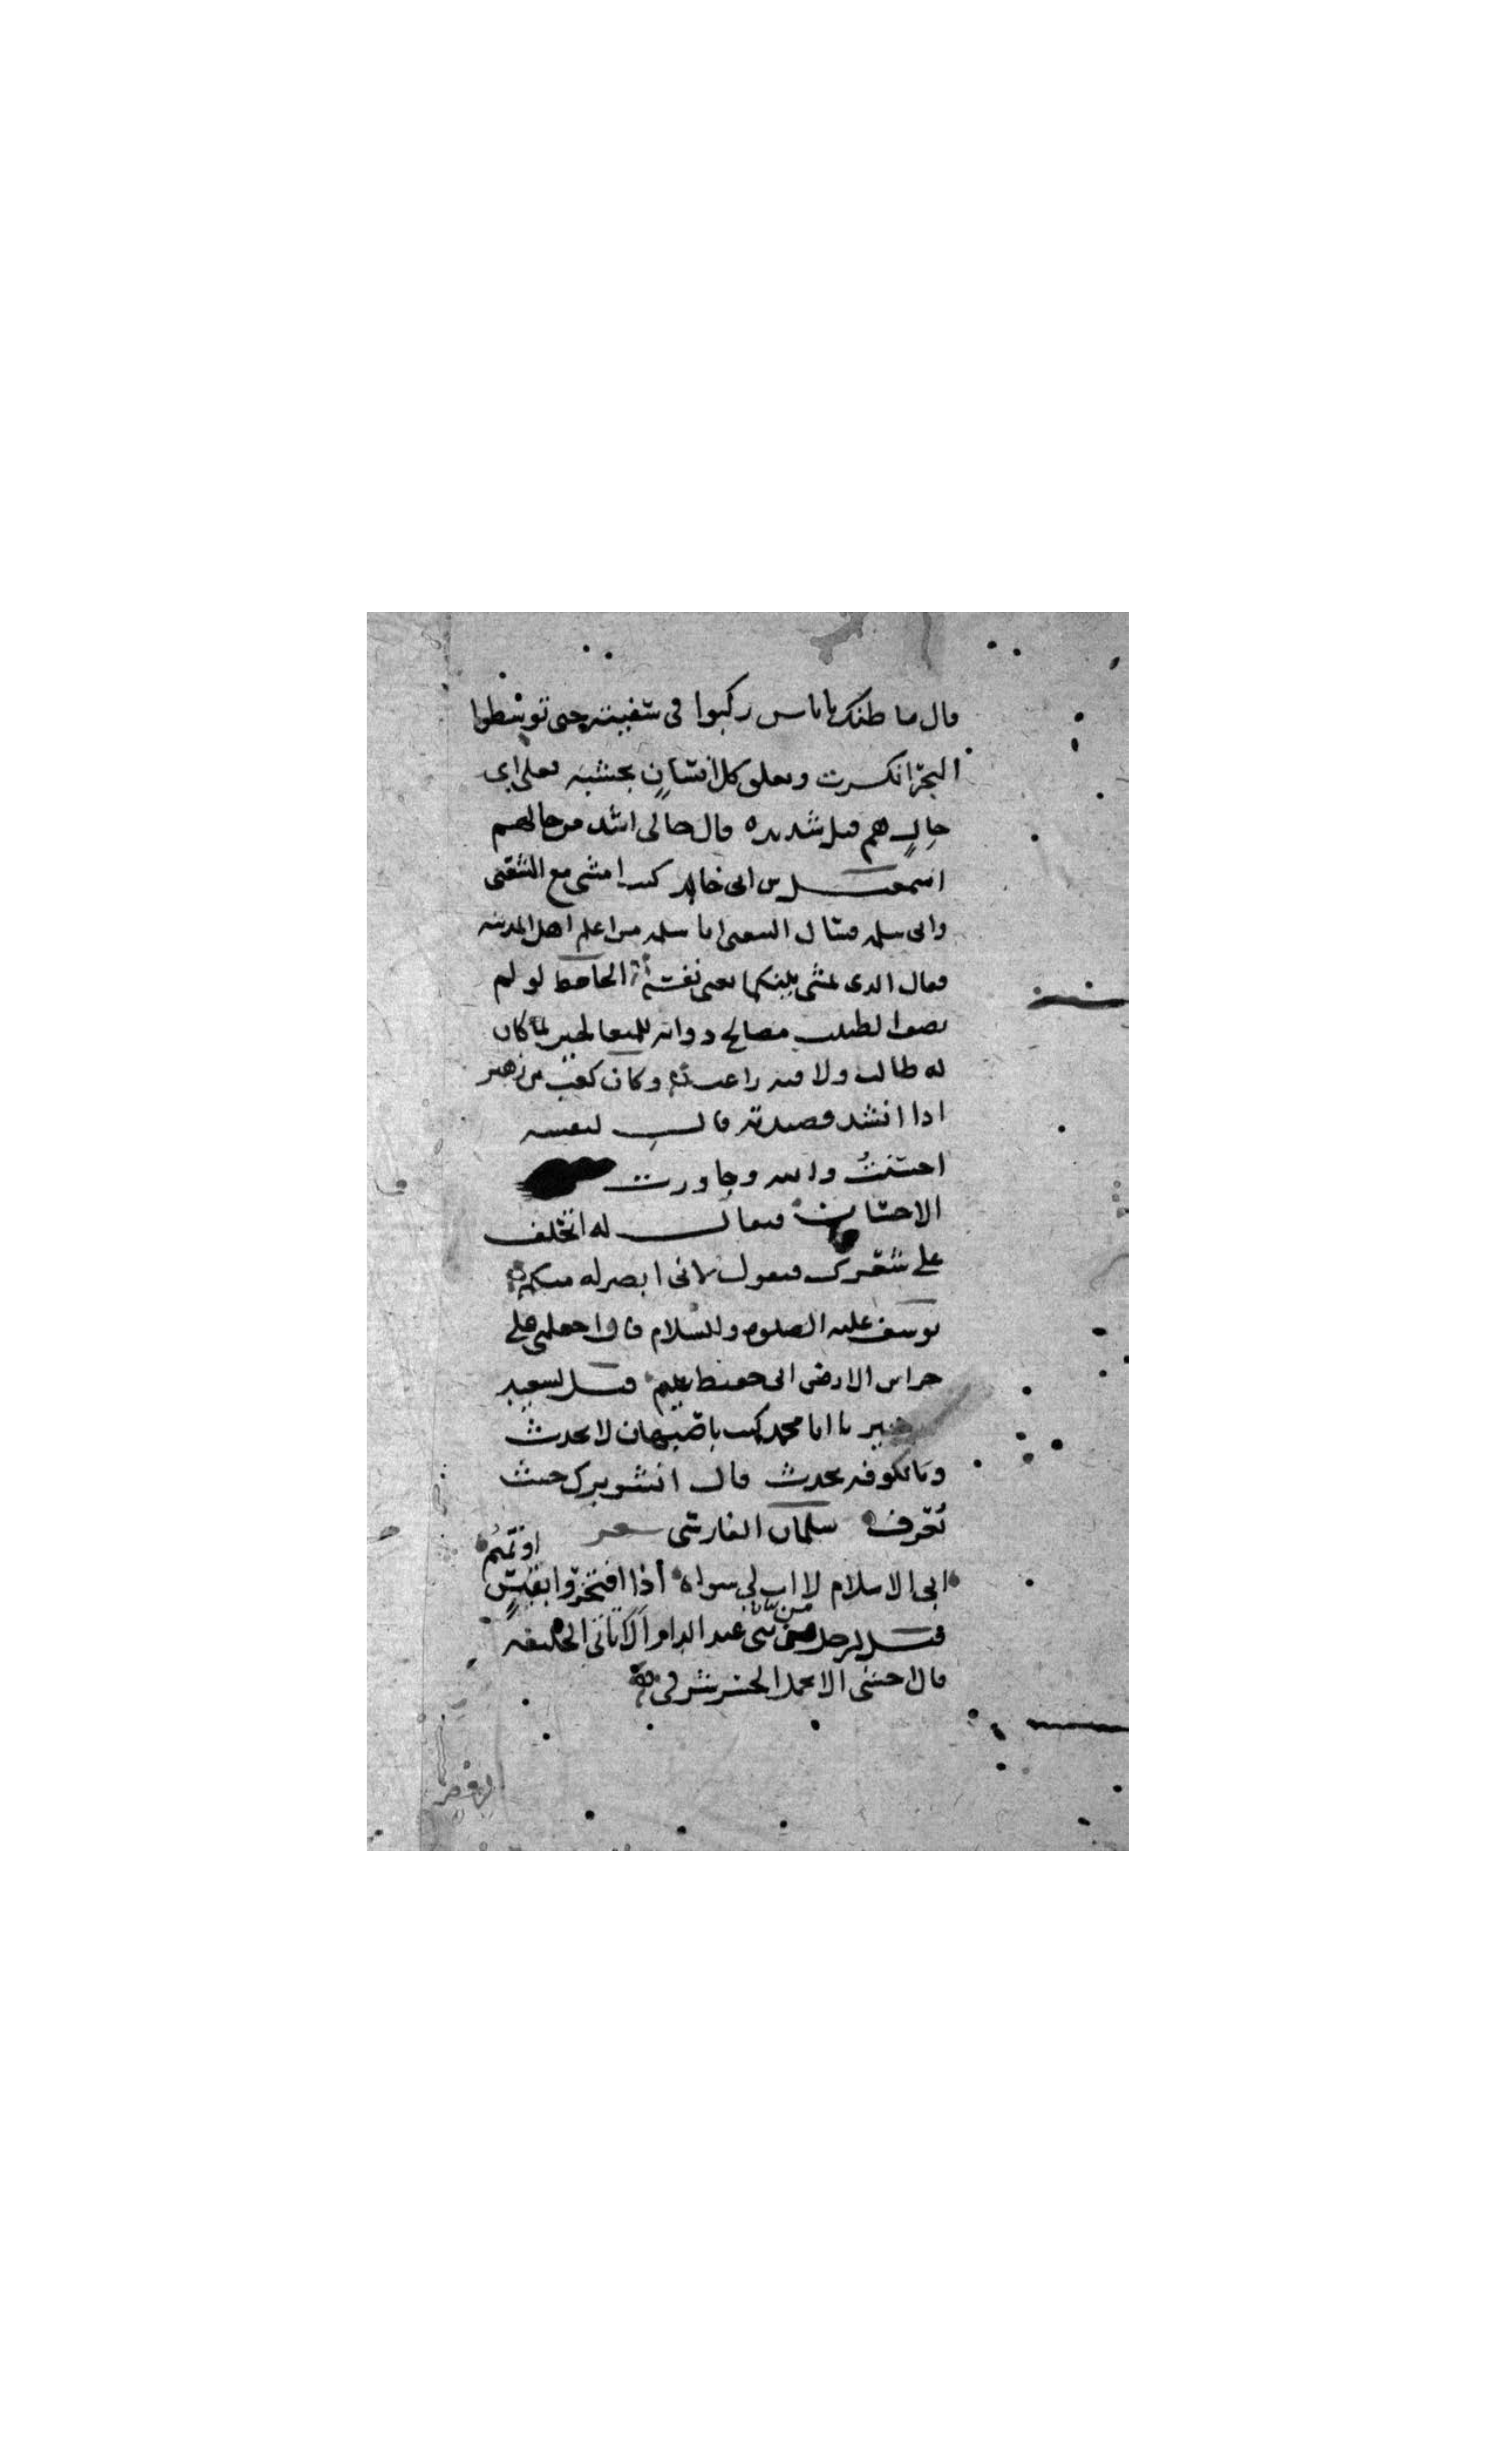 قال ما ظنك بأناس ركبوا في سفينة حتى توسطوا
البحر انكسرت وتعلق كل إنسان بخشبة فعلى أي
حالٍ هم قيل شديدة قال حالي أشد من حالهم
إسمعيل بن أبي خالد كنت أمشي مع الشعبي
وأبي سلمة فسأل الشعبي أبا سلمة من أعلم أهل المدينة
فقال الذي يمشي بينكما يعني نفسه الجاحظ لو لم
يصف الطبيب مصالح دوائه للمتعالجين لما كان
له طالب ولا فيه راغب وكان كعب بن زهير
إذا أنشد قصيدته قال لنفسه
أحسنتُ والله وجاوزت
الإحسان فيقال له أتحلف
على شعرك فيقول لأني أبصر له منكم
يوسف عليه الصلوة والسلام قال اجعلني على
خزائن الارض اني حفيظ عليم قيل لسعيد
جبير يا أبا محمد كنت بأصبهان لا تحدث
وبالكوفة تحدث قال انشر بزك حيث
تُعرف سلمان الفارسي شعر
أبي الاسلام لا اب لي سواه إذا افتخروا بقيسٍ
او تميم
قيل لرجل من بني عبد الدار ألا تأتي الخليفة
قال أخشى ألا يحمل الجسر شرفي